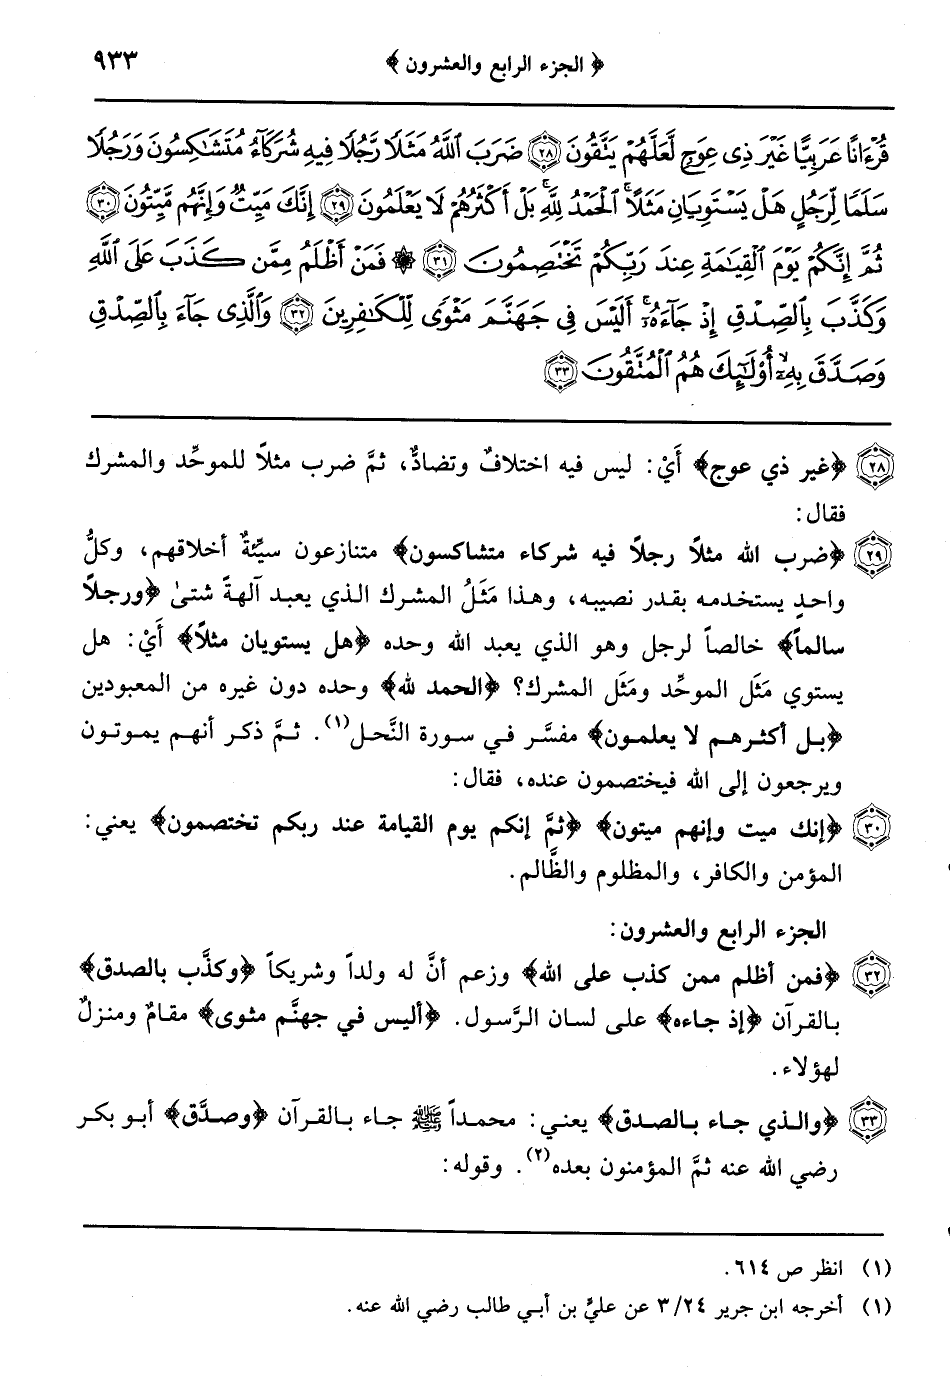 ﴿ الجزء الرابع والعشرون ﴾ ٩٣٣
قُرْءَانًا عَرَبِيًّا غَيْرَ ذِى عِوَجٍ لَّعَلَّهُمْ يَتَّقُونَ ٢٨ ضَرَبَ ٱللَّهُ مَثَلًا رَّجُلًا فِيهِ شُرَكَآءُ مُتَشَٰكِسُونَ وَرَجُلًا
سَلَمًا لِّرَجُلٍ هَلْ يَسْتَوِيَانِ مَثَلًا ۚ ٱلْحَمْدُ لِلَّهِ ۚ بَلْ أَكْثَرُهُمْ لَا يَعْلَمُونَ ٢٩ إِنَّكَ مَيِّتٌ وَإِنَّهُم مَّيِّتُونَ ٣٠
ثُمَّ إِنَّكُمْ يَوْمَ ٱلْقِيَٰمَةِ عِندَ رَبِّكُمْ تَخْتَصِمُونَ ٣١ ۞ فَمَنْ أَظْلَمُ مِمَّن كَذَبَ عَلَى ٱللَّهِ
وَكَذَّبَ بِٱلصِّدْقِ إِذْ جَآءَهُۥٓ ۚ أَلَيْسَ فِى جَهَنَّمَ مَثْوًى لِّلْكَٰفِرِينَ ٣٢ وَٱلَّذِى جَآءَ بِٱلصِّدْقِ
وَصَدَّقَ بِهِۦٓ ۙ أُو۟لَٰٓئِكَ هُمُ ٱلْمُتَّقُونَ ٣٣
٢٨ ﴿غير ذي عوج﴾ أَيْ: ليس فيه اختلافٌ وتضادٌّ، ثمَّ ضرب مثلاً للموحِّد والمشرك
فقال:
٢٩ ﴿ضرب الله مثلاً رجلاً فيه شركاء متشاكسون﴾ متنازعون سيِّئةٌ أخلاقهم، وكلُّ
واحدٍ يستخدمه بقدر نصيبه، وهذا مَثَلُ المشرك الذي يعبد آلهةً شتىٰ ﴿ورجلاً
سالماً﴾ خالصاً لرجل وهو الذي يعبد الله وحده ﴿هل يستويان مثلاً﴾ أَيْ: هل
يستوي مَثَل الموحِّد ومَثَل المشرك؟ ﴿الحمد لله﴾ وحده دون غيره من المعبودين
﴿بل أكثرهم لا يعلمون﴾ مفسَّر في سورة النَّحل(١). ثمَّ ذكر أنهم يموتون
ويرجعون إلى الله فيختصمون عنده، فقال:
٣٠ ﴿إنك ميت وإنهم ميتون﴾ ﴿ثمَّ إنكم يوم القيامة عند ربكم تختصمون﴾ يعني:
المؤمن والكافر، والمظلوم والظَّالم.
الجزء الرابع والعشرون:
٣٢ ﴿فمن أظلم ممن كذب على الله﴾ وزعم أنَّ له ولداً وشريكاً ﴿وكذَّب بالصدق﴾
بالقرآن ﴿إذ جاءه﴾ على لسان الرَّسول. ﴿أليس في جهنَّم مثوى﴾ مقامٌ ومنزلٌ
لهؤلاء.
٣٣ ﴿والذي جاء بالصدق﴾ يعني: محمداً ﷺ جاء بالقرآن ﴿وصدَّق﴾ أبو بكر
رضي الله عنه ثمَّ المؤمنون بعده(٢). وقوله:
(١) انظر ص ٦١٤.
(١) أخرجه ابن جرير ٣/٢٤ عن عليِّ بن أبي طالب رضي الله عنه.